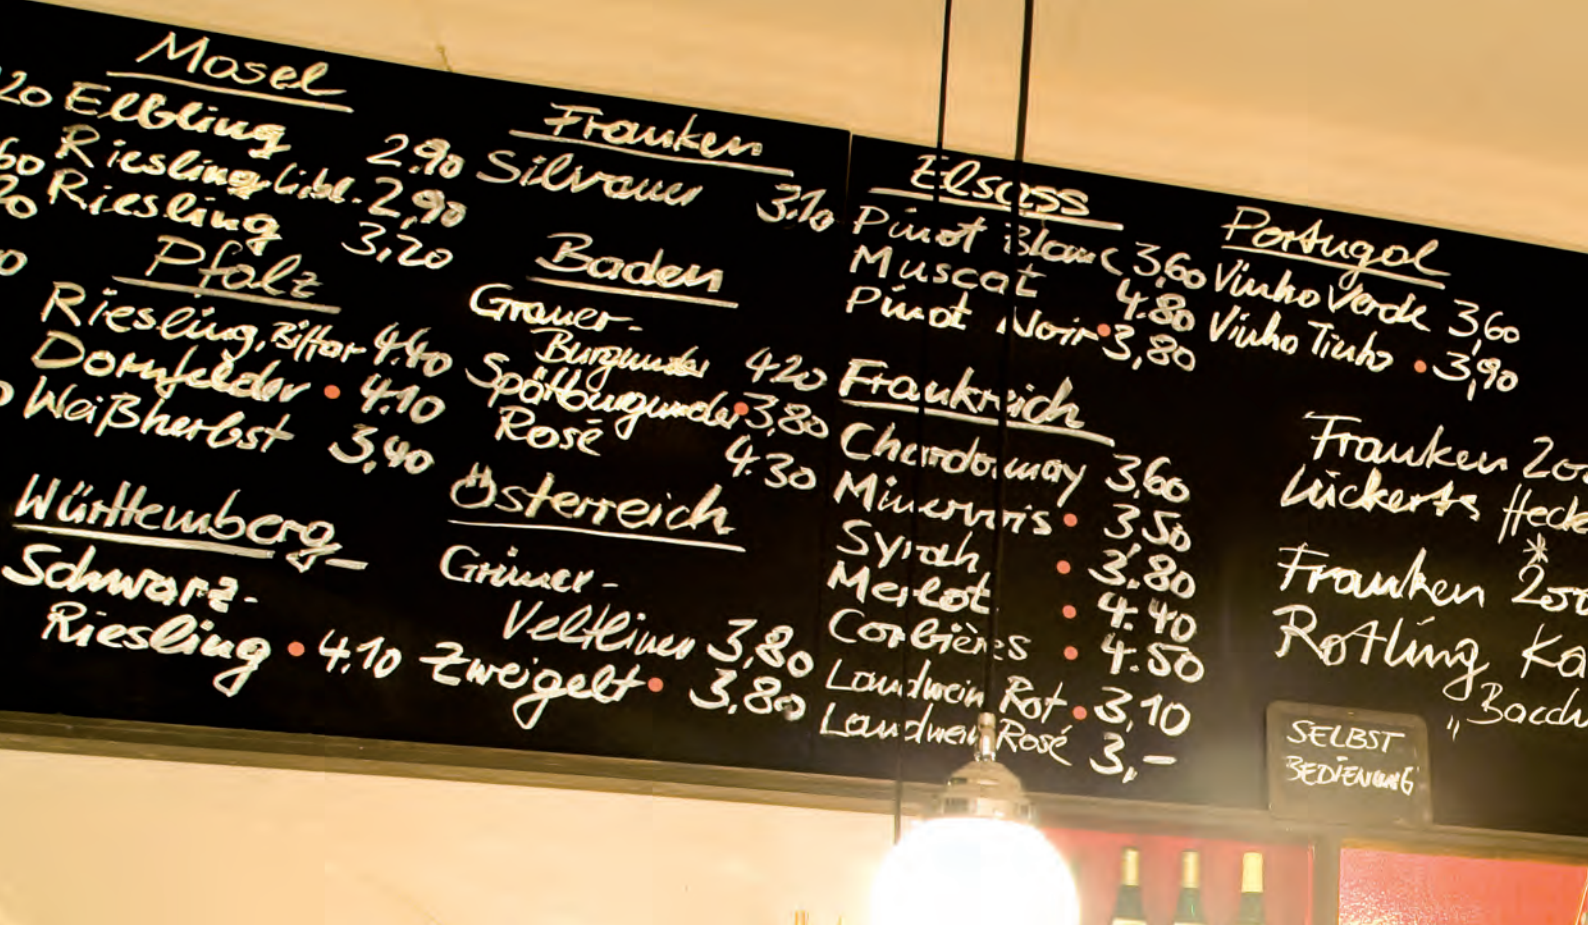 Mosel
20 Elbling 2.90
60 Riesling Libl. 2,90
20 Riesling 3,20
Pfalz
Riesling, Ritter 4.40
Dornfelder • 4.10
Weißherbst 3,40
Württemberg
Schwarz-
Riesling • 4.10
Franken
Silvaner 3.10
Baden
Grauer-
Burgunder 4.20
Spätburgunder • 3,80
Rosé 4.30
Österreich
Grüner-
Veltliner 3,80
Zweigelt • 3,80
Elsass
Pinot Blanc 3,60
Muscat 4.80
Pinot Noir • 3,80
Frankreich
Chardonnay 3,60
Minervois • 3,50
Syrah • 3,80
Merlot • 4.40
Corbières • 4.50
Landwein Rot • 3,10
Landwein Rosé 3,-
Portugal
Vinho Verde 3,60
Vinho Tinho • 3,90
Franken 200
Lückerts Hecke
*
Franken 200
Rotling Ka
"Bacchu
SELBST
BEDIENUNG